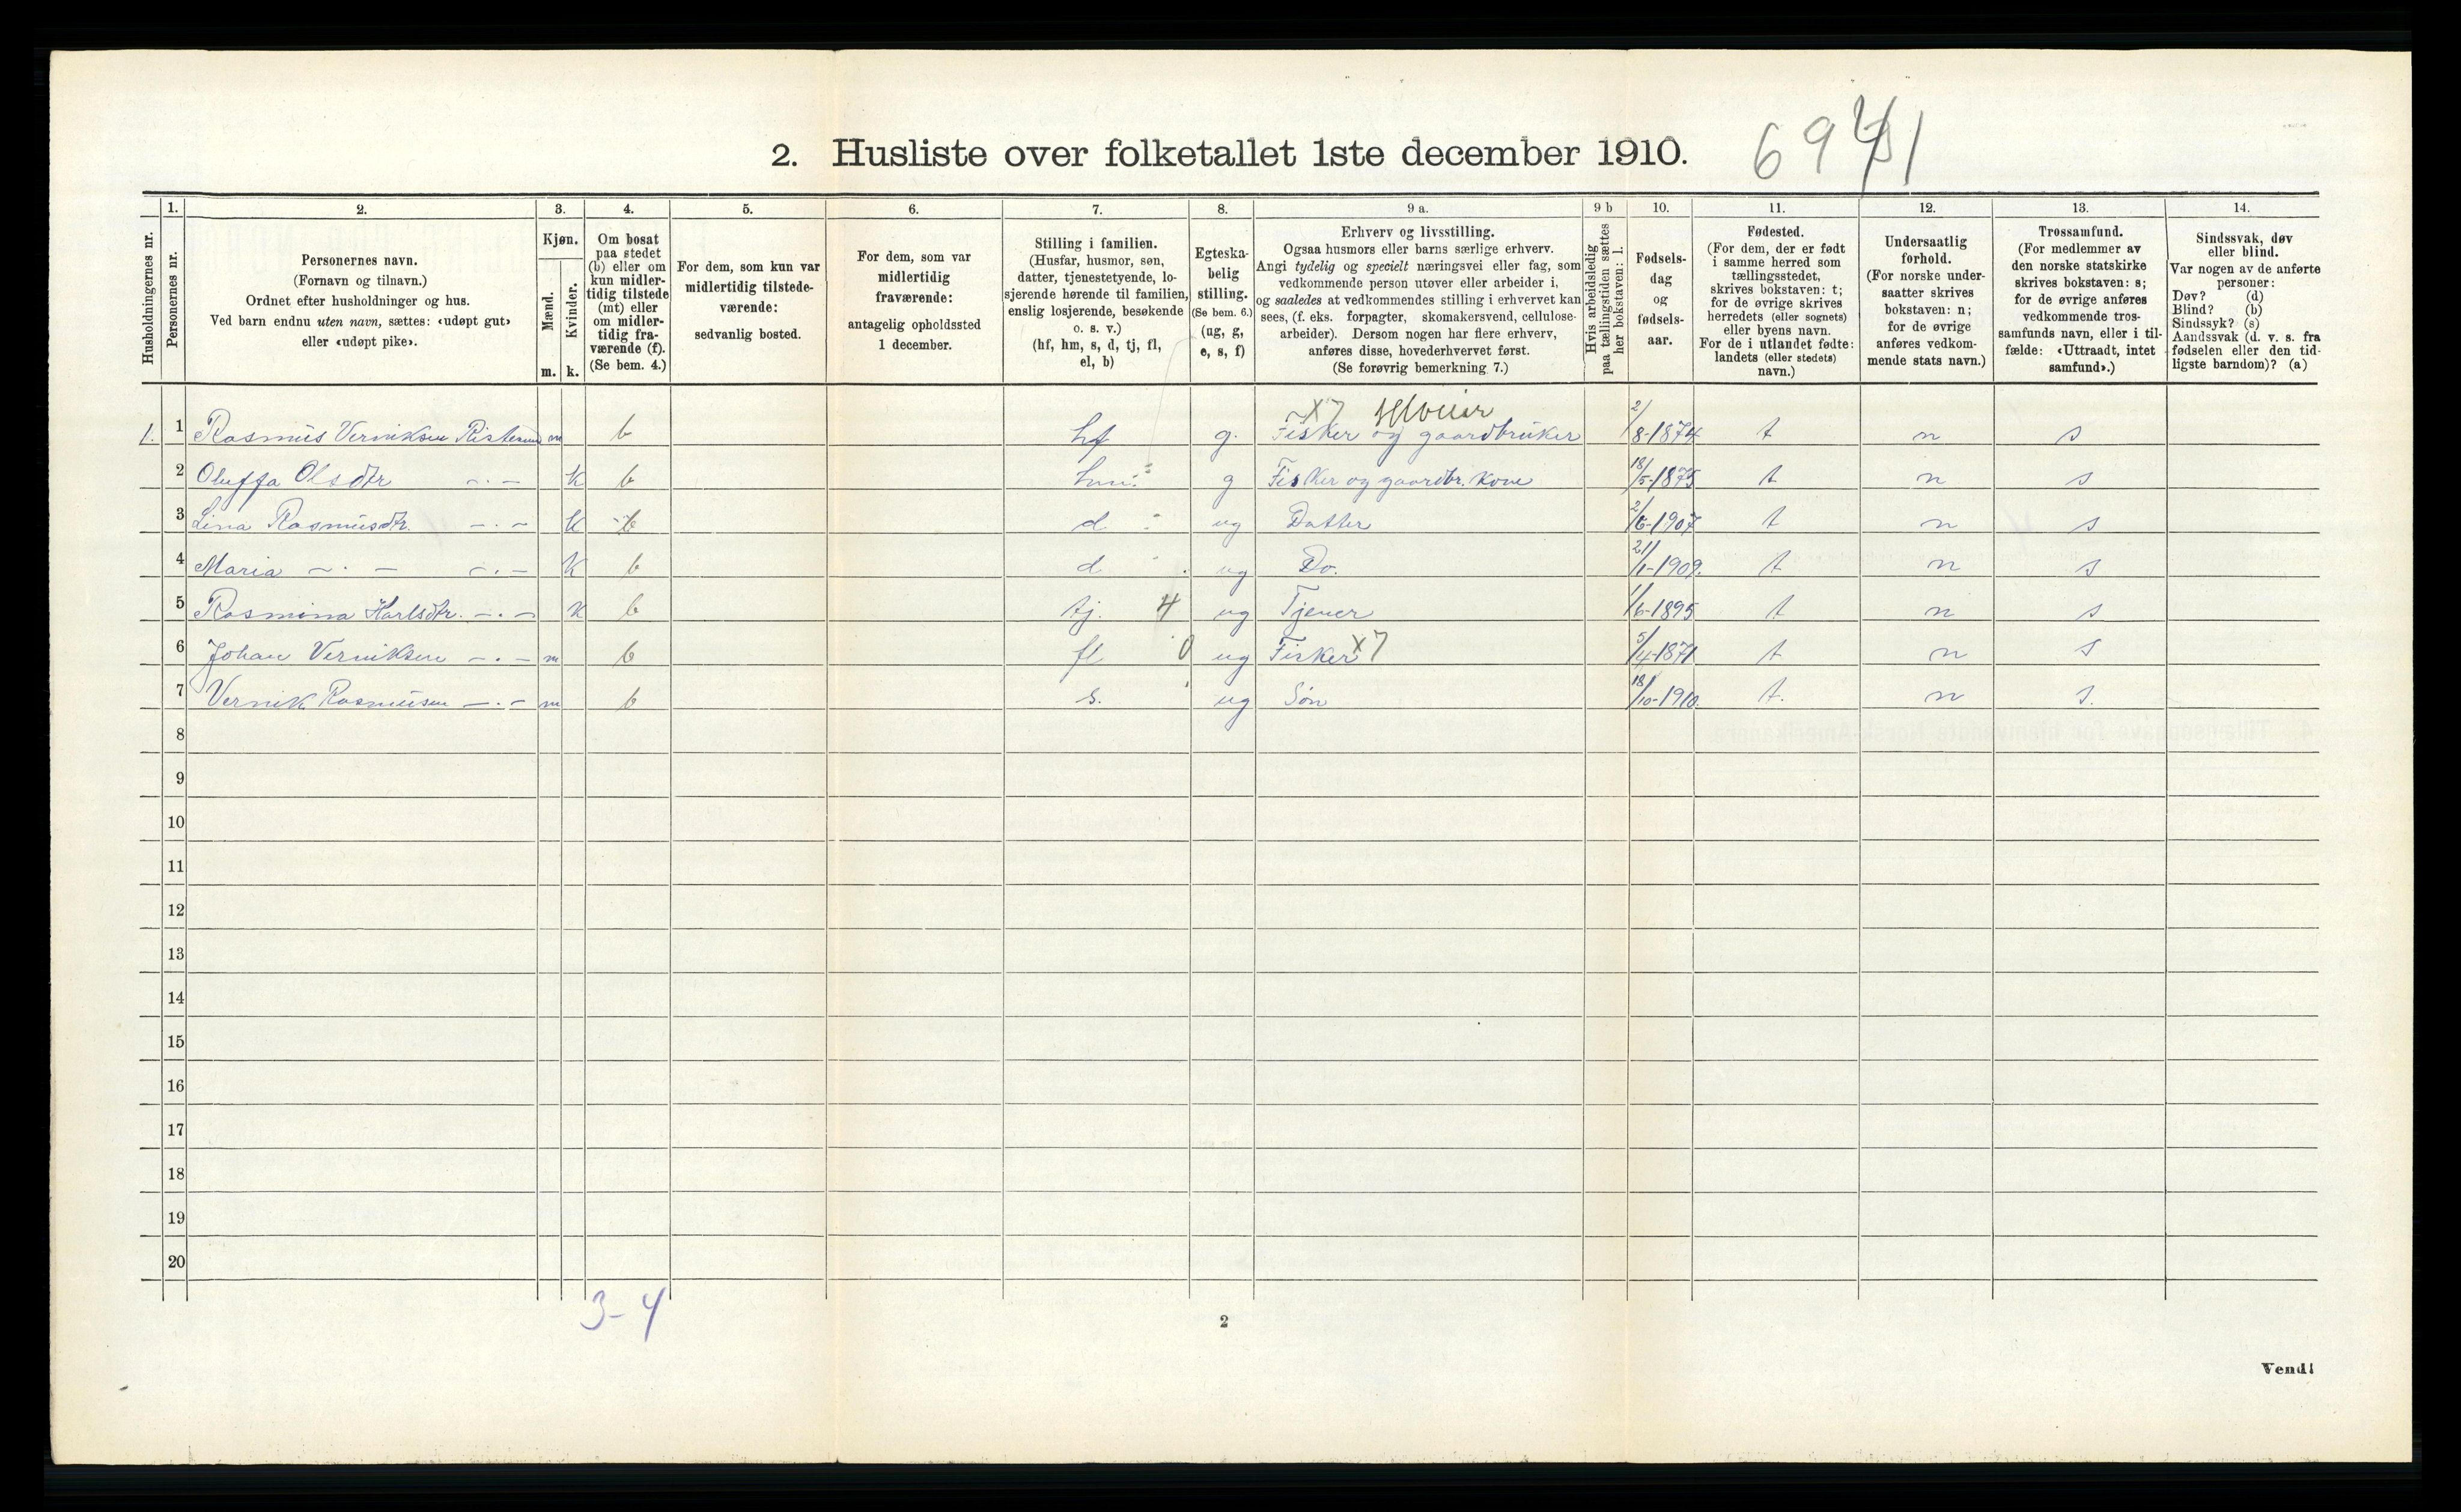 2. Husliste over folketallet 1ste december 1910.
1. 2. 3. 4. 5. 6. 7. 8. 9 a. 9 b 10. 11. 12. 13. 14.
Husholdningernes nr.
Personernes nr.
Personernes navn.
(Fornavn og tilnavn.)
Ordnet efter husholdninger og hus.
Ved barn endnu uten navn, sættes: «udøpt gut»
eller «udøpt pike».
Kjøn.
Mænd.
Kvinder.
m. k.
Om bosat
paa stedet
(b) eller om
kun midler-
tidig tilstede
(mt) eller
om midler-
tidig fra-
værende (f).
(Se bem. 4.)
For dem, som kun var
midlertidig tilstede-
værende:
sedvanlig bosted.
For dem, som var
midlertidig
fraværende:
antagelig opholdssted
1 december.
Stilling i familien.
(Husfar, husmor, søn,
datter, tjenestetyende, lo-
sjerende hørende til familien,
enslig losjerende, besøkende
o. s. v.)
(hf, hm, s, d, tj, fl,
el, b)
Egteska-
belig
stilling.
(Se bem. 6.)
(ug, g,
e, s, f)
Erhverv og livsstilling.
Ogsaa husmors eller barns særlige erhverv.
Angi tydelig og specielt næringsvei eller fag, som
vedkommende person utøver eller arbeider i,
og saaledes at vedkommendes stilling i erhvervet kan
sees, (f. eks. forpagter, skomakersvend, cellulose-
arbeider). Dersom nogen har flere erhverv,
anføres disse, hovederhvervet først.
(Se forøvrig bemerkning 7.)
Hvis arbeidsledig
paa tællingstiden sættes
her bokstaven: l.
Fødsels-
dag
og
fødsels-
aar.
Fødested.
(For dem, der er født
i samme herred som
tællingsstedet,
skrives bokstaven: t;
for de øvrige skrives
herredets (eller sognets)
eller byens navn.
For de i utlandet fødte:
landets (eller stedets)
navn.)
Undersaatlig
forhold.
(For norske under-
saatter skrives
bokstaven: n;
for de øvrige
anføres vedkom-
mende stats navn.)
Trossamfund.
(For medlemmer av
den norske statskirke
skrives bokstaven: s;
for de øvrige anføres
vedkommende tros-
samfunds navn, eller i til-
fælde: «Uttraadt, intet
samfund».)
Sindssvak, døv
eller blind.
Var nogen av de anførte
personer:
Døv? (d)
Blind? (b)
Sindssyk? (s)
Aandssvak (d. v. s. fra
fødselen eller den tid-
ligste barndom)? (a)
X7 Selveier
1. 1 Rasmus Verniksen m b hf g. Fisker og gaardbruker 2/8-1874 t n s
2 Oluffa Olsdtr -.- k b hm: g Fisker og gaardbr. kone 18/5-1875 t n s
3 Lina Rasmusdtr. -.- k b d ug Datter 2/6-1907 t n s
4 Maria -.- -.- k b d ug Do. 21/1-1909. t n s
5 Rasmina Karlsdtr. -.- k b tj. 4 ug Tjener 1/6-1895 t n s
6 Johan Verniksen -.- m b fl 0 ug Fisker X7 5/4-1871 t n s
7 Vernik Rasmusen -.- m b s. ug Søn 18/10-1910. t. n s.
8
9
10
11
12
13
14
15
16
17
18
19
20
3-4
2
Vend!